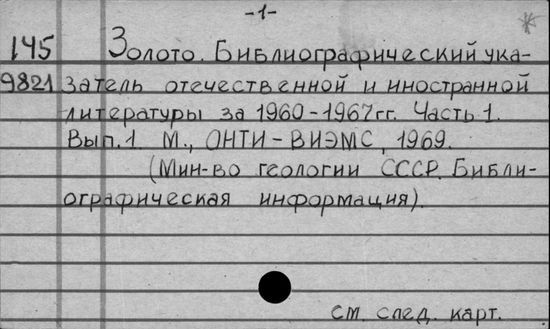 -1-
145 Золото. Библиографический ука-
9821 затель отечественной и иностранной
литературы за 1960-1967гг. Часть 1.
Вып.1. М., ОНТИ-ВИЭМС, 1969.
(Мин-во геологии СССР. Библи-
ографическая информация).
см. след. карт.